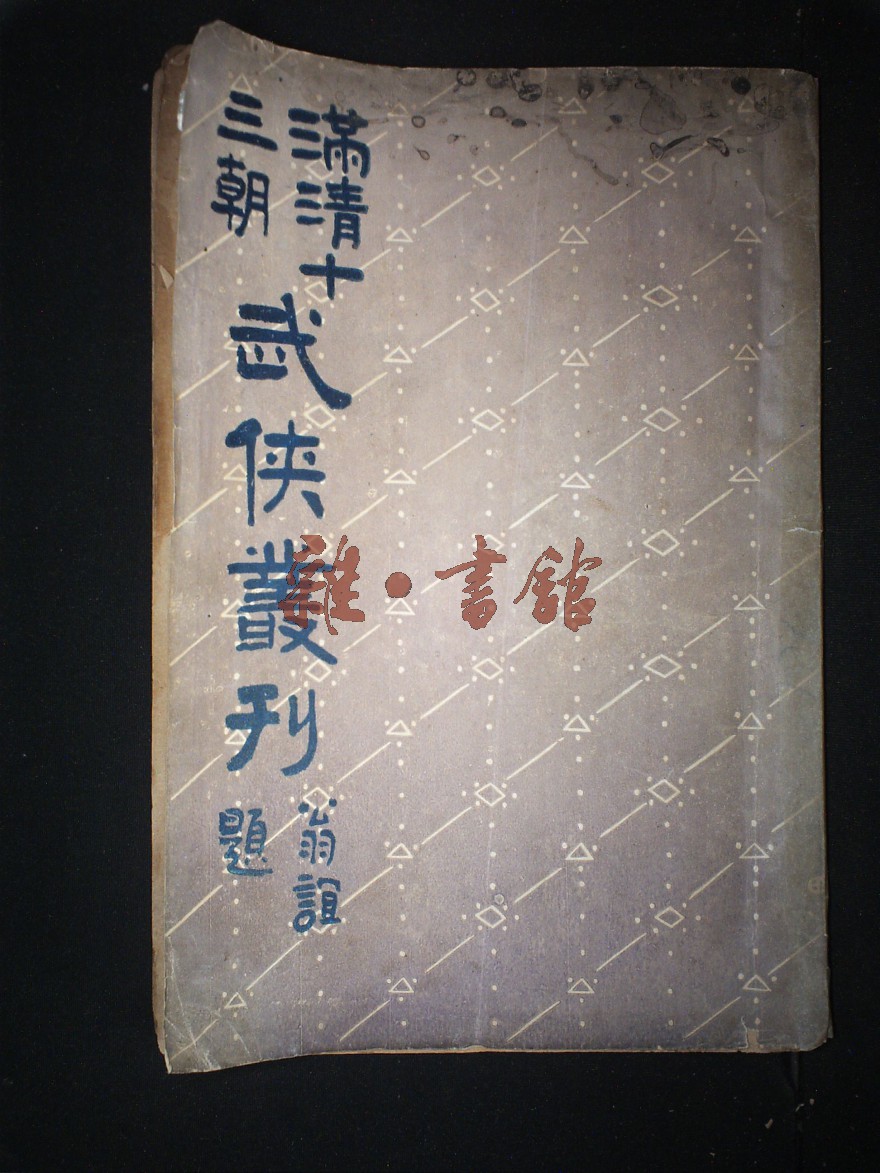 滿清十
三朝
武俠叢刊
翁誼
題
雜·書館